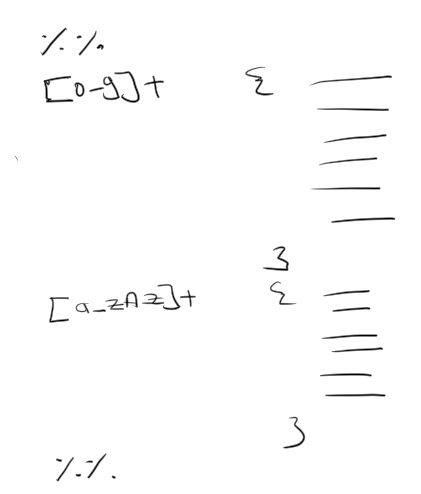 %%
[0-9]+ {
}
[a-zAz]+ {
}
%%